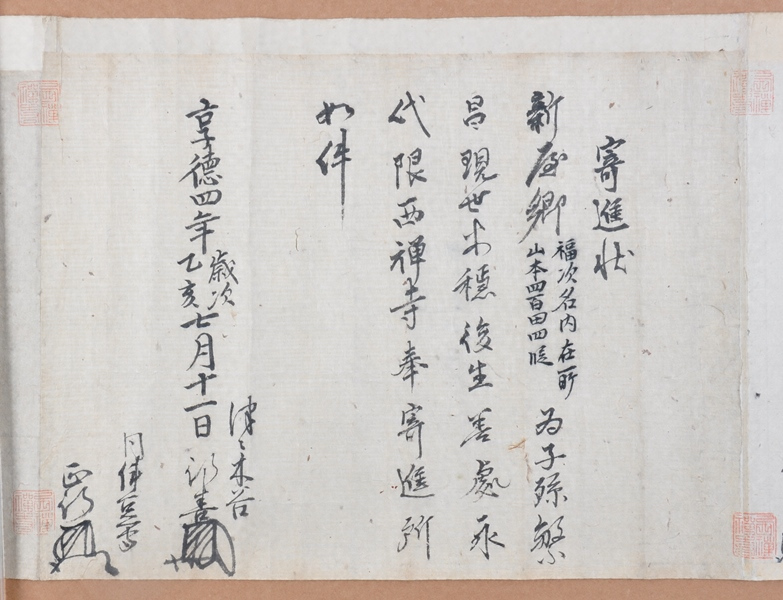 寄進状
新屋郷福次名内在所
山本四百田四段為子孫繁
昌現世安穏後生善處永
代限西禅寺奉寄進所
如件
享徳四年歳次
乙亥七月十一日
木谷